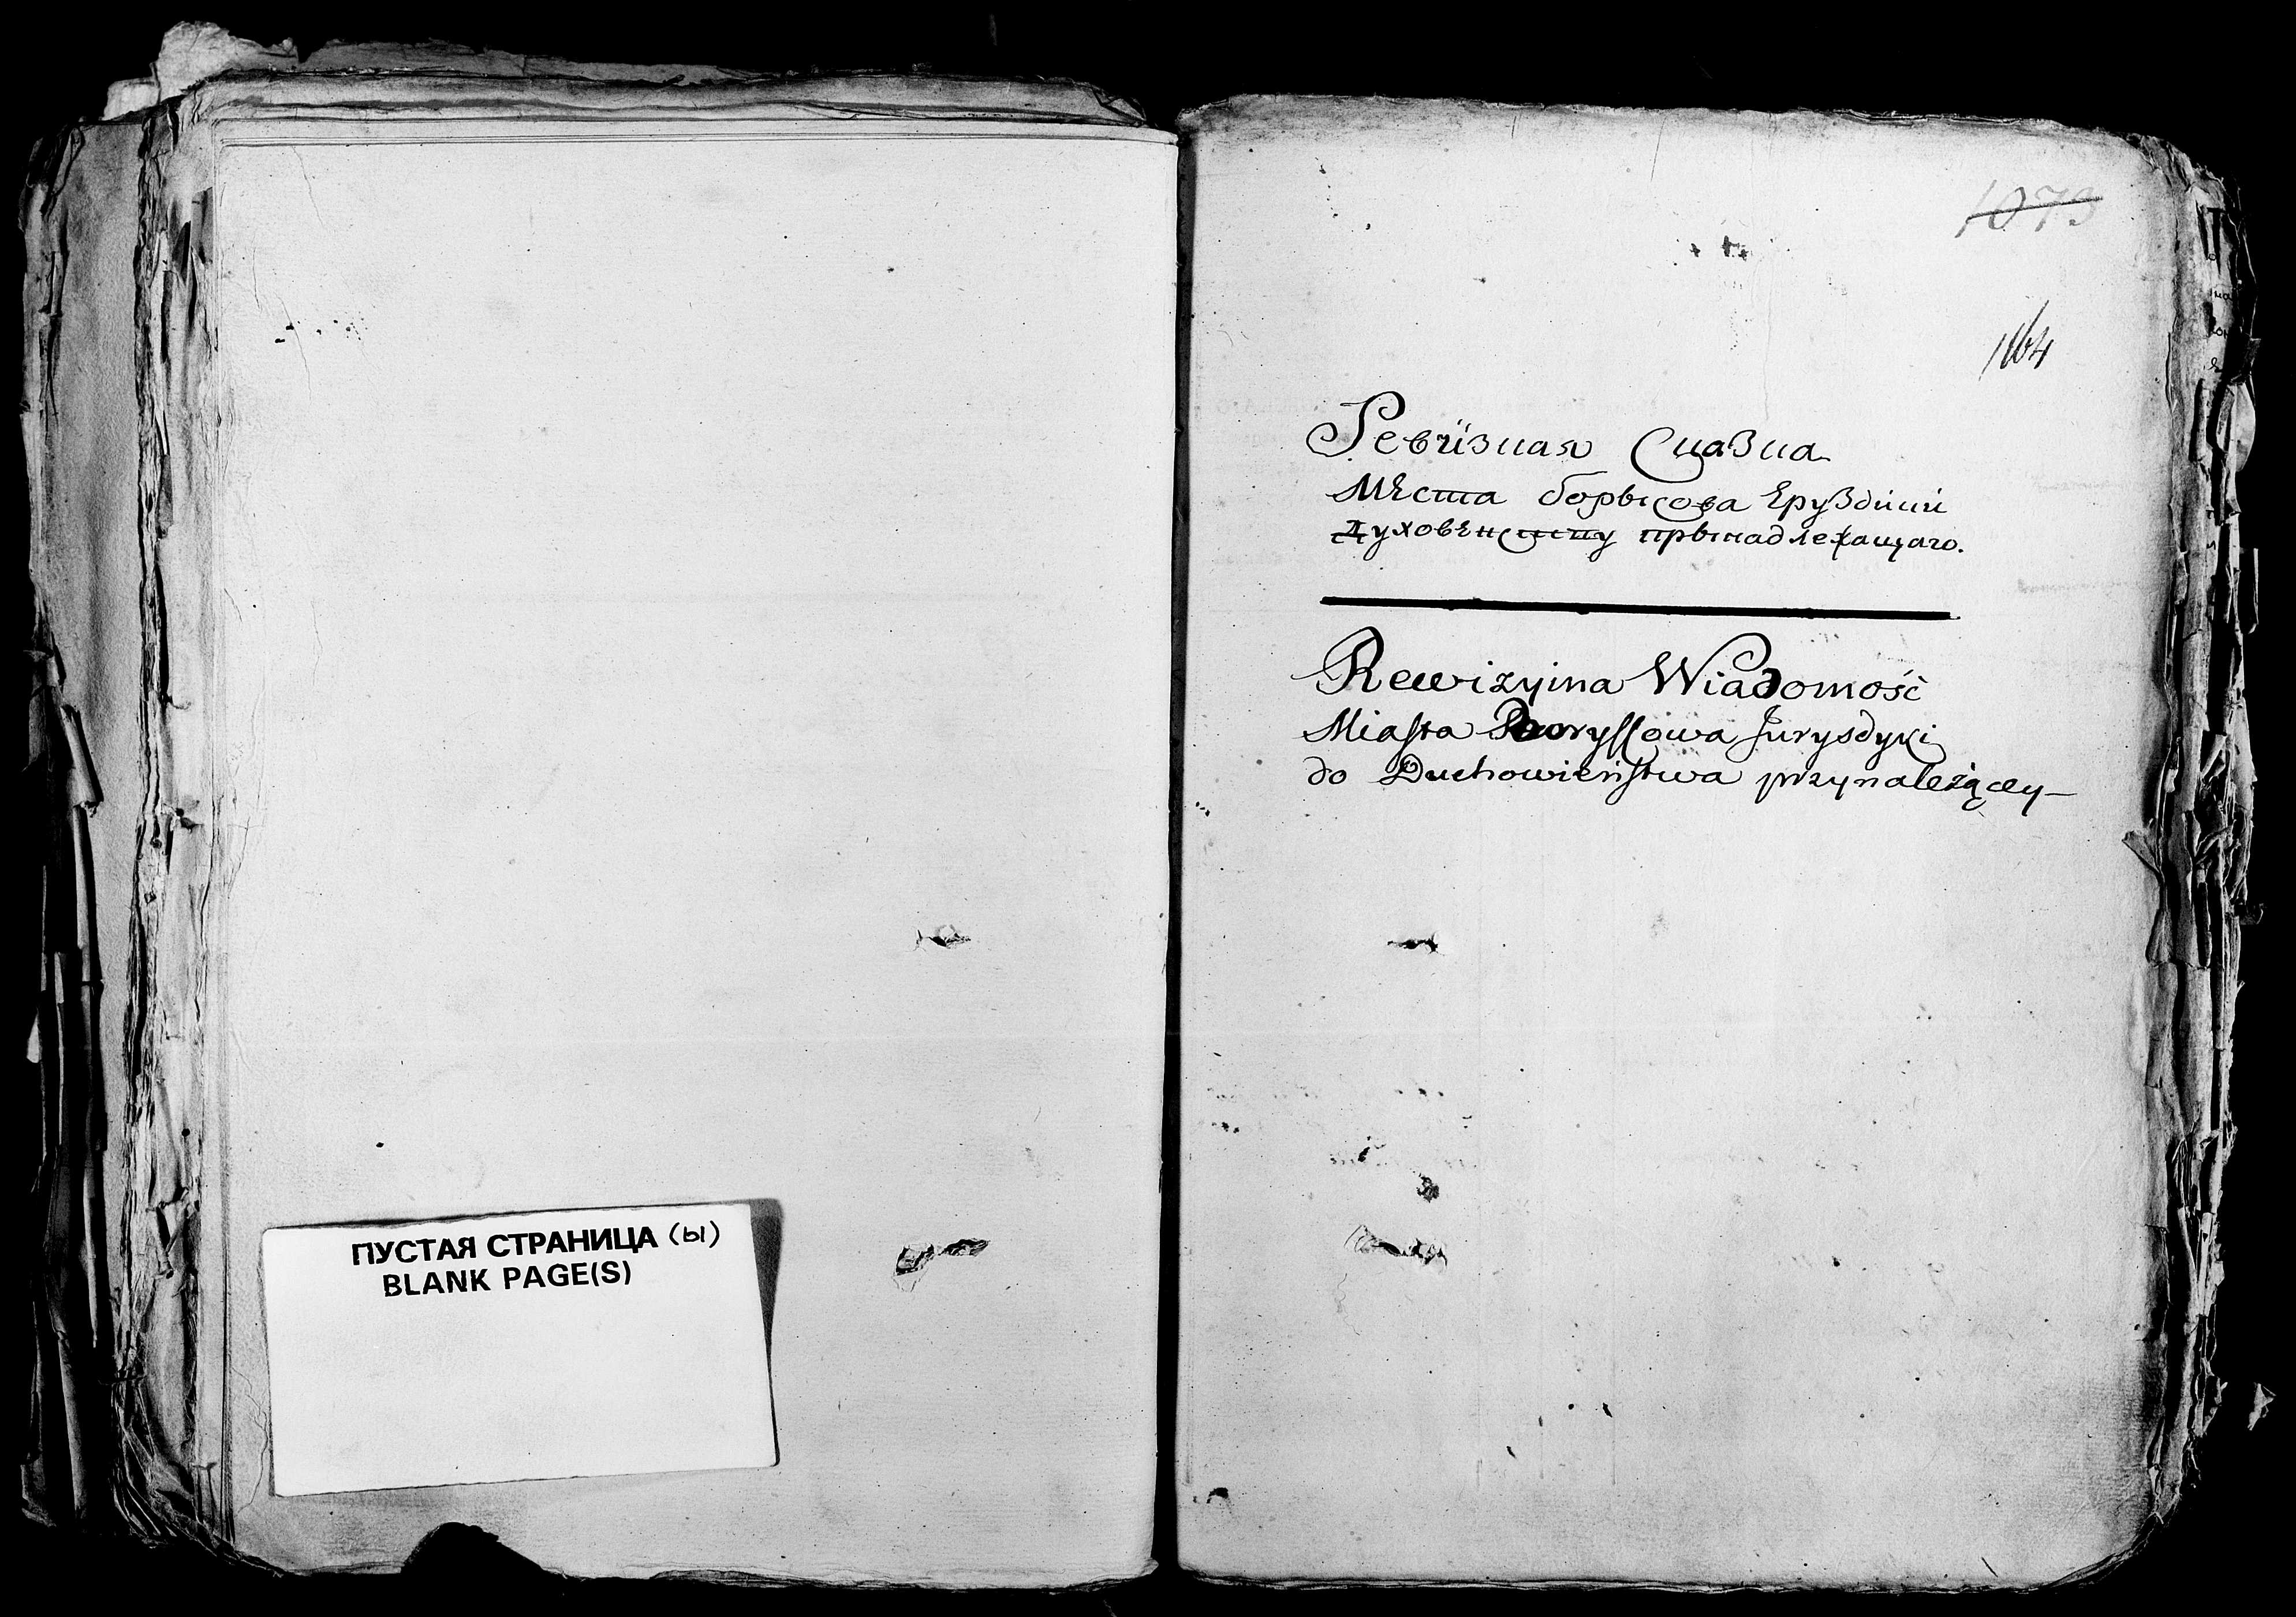 ПУСТАЯ СТРАНИЦА (ы)
BLANK PAGE(S)
1073
1164
Ревизная Сказка
Мѣста борысова Еруздики
Духовѣнству прынадлежащаго.
Rewizyina Wiadomość
Miasta Boryssowa Jurysdyki
do Duchowieństwa przynależącey